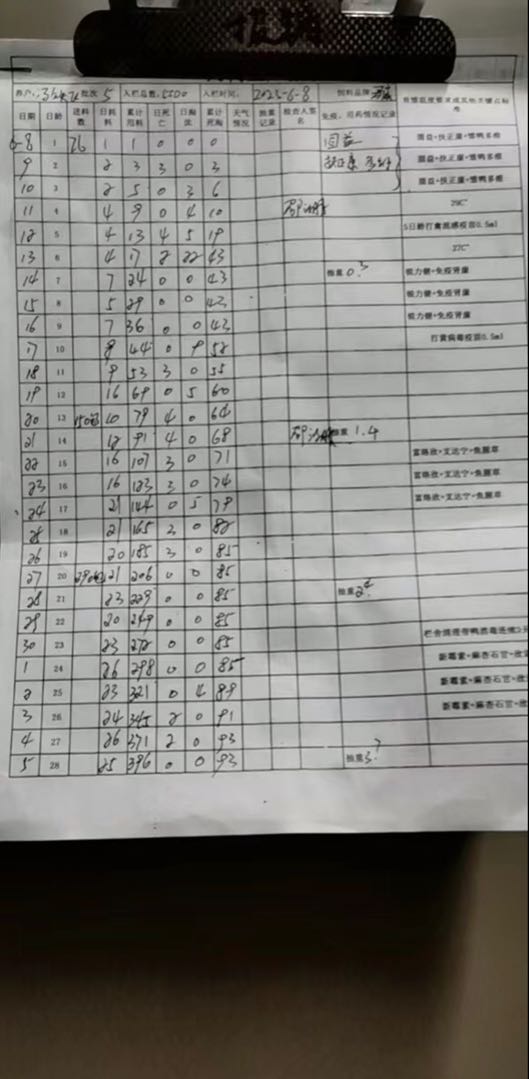 批次 5 入栏总数:5100 入栏时间: 2025-6-8 饲料品牌
日期 日龄 送料数 日耗料 累计用耗 日死亡 日淘汰 累计死淘 天气情况 抽重记录 检查人签名 免疫、用药情况记录
6-8 1 76 1 1 0 0 0 固益 固益+扶正康+雏鸭多维
9 2 2 3 3 0 3 扶正康 多维 固益+扶正康+雏鸭多维
10 3 2 5 0 3 6 固益+扶正康+雏鸭多维
11 4 4 9 0 4 10 29C°
12 5 4 13 4 5 19 5日龄打禽流感疫苗0.5ml
13 6 4 17 2 22 43 27C°
14 7 7 24 0 0 43 抽重0.3 毯力健+免疫肾康
15 8 5 29 0 0 43 毯力健+免疫肾康
16 9 7 36 0 0 43 毯力健+免疫肾康
17 10 8 44 0 9 52 打黄病毒疫苗0.5ml
18 11 9 53 3 0 55
19 12 16 69 0 5 60
20 13 150包 10 79 4 0 64
21 14 12 91 4 0 68 抽重 1.4
22 15 16 107 3 0 71 富络欣+支达宁+鱼腥草
23 16 16 123 3 0 74 富络欣+支达宁+鱼腥草
24 17 21 144 0 5 79 富络欣+支达宁+鱼腥草
25 18 21 165 3 0 82
26 19 20 185 3 0 85
27 20 290包 21 206 0 0 85
28 21 23 229 0 0 85 抽重2.4
29 22 20 249 0 0 85
30 23 23 272 0 0 85
1 24 26 298 0 0 85 新霉素+麻杏石甘+
2 25 23 321 0 4 89 新霉素+麻杏石甘+
3 26 24 345 2 0 91 新霉素+麻杏石甘+
4 27 26 371 2 0 93
5 28 25 396 0 0 93 抽重3.7